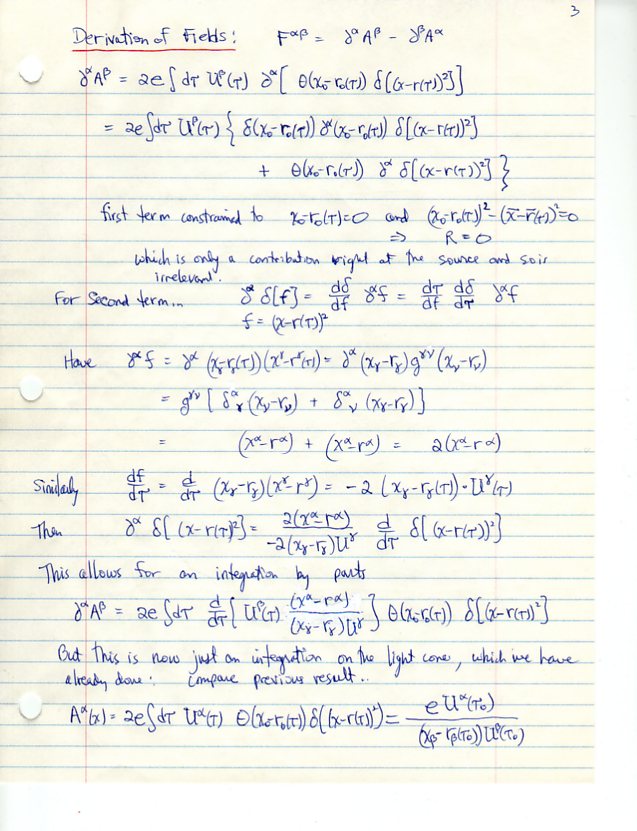 3
Derivation of Fields: F^{αβ} = ∂^α A^β − ∂^β A^α
∂^α A^β = 2e ∫ dτ U^β(τ) ∂^α [ θ(x₀−r₀(τ)) δ[(x−r(τ))²] ]
= 2e ∫ dτ U^β(τ) { δ(x₀−r₀(τ)) ∂^α(x₀−r₀(τ)) δ[(x−r(τ))²]
+ θ(x₀−r₀(τ)) ∂^α δ[(x−r(τ))²] }
first term constrained to x₀−r₀(τ)=0 and (x₀−r₀(τ))²−(x̄−r̄(τ))²=0
⇒ R = 0
which is only a contribution right at the source and so is
irrelevant.
For second term... ∂^α δ[f] = dδ/df ∂^α f = dτ/df dδ/dτ ∂^α f
f = (x−r(τ))²
Have ∂^α f = ∂^α (x_γ−r_γ(τ))(x^γ−r^γ(τ)) = ∂^α (x_γ−r_γ) g^{γν} (x_ν−r_ν)
= g^{γν} [ δ^α_γ (x_ν−r_ν) + δ^α_ν (x_γ−r_γ) ]
= (x^α−r^α) + (x^α−r^α) = 2(x^α−r^α)
Similarly df/dτ = d/dτ (x_γ−r_γ)(x^γ−r^γ) = −2 (x_γ−r_γ(τ))·U^γ(τ)
Then ∂^α δ[(x−r(τ))²] = 2(x^α−r^α)/−2(x_γ−r_γ)U^γ d/dτ δ[(x−r(τ))²]
This allows for an integration by parts
∂^α A^β = 2e ∫ dτ d/dτ { U^β(τ) (x^α−r^α)/(x_γ−r_γ)U^γ } θ(x₀−r₀(τ)) δ[(x−r(τ))²]
But this is now just an integration on the light cone, which we have
already done: compare previous result..
A^α(x) = 2e ∫ dτ U^α(τ) θ(x₀−r₀(τ)) δ[(x−r(τ))²] = e U^α(τ₀)/(x_β−r_β(τ₀)) U^β(τ₀)